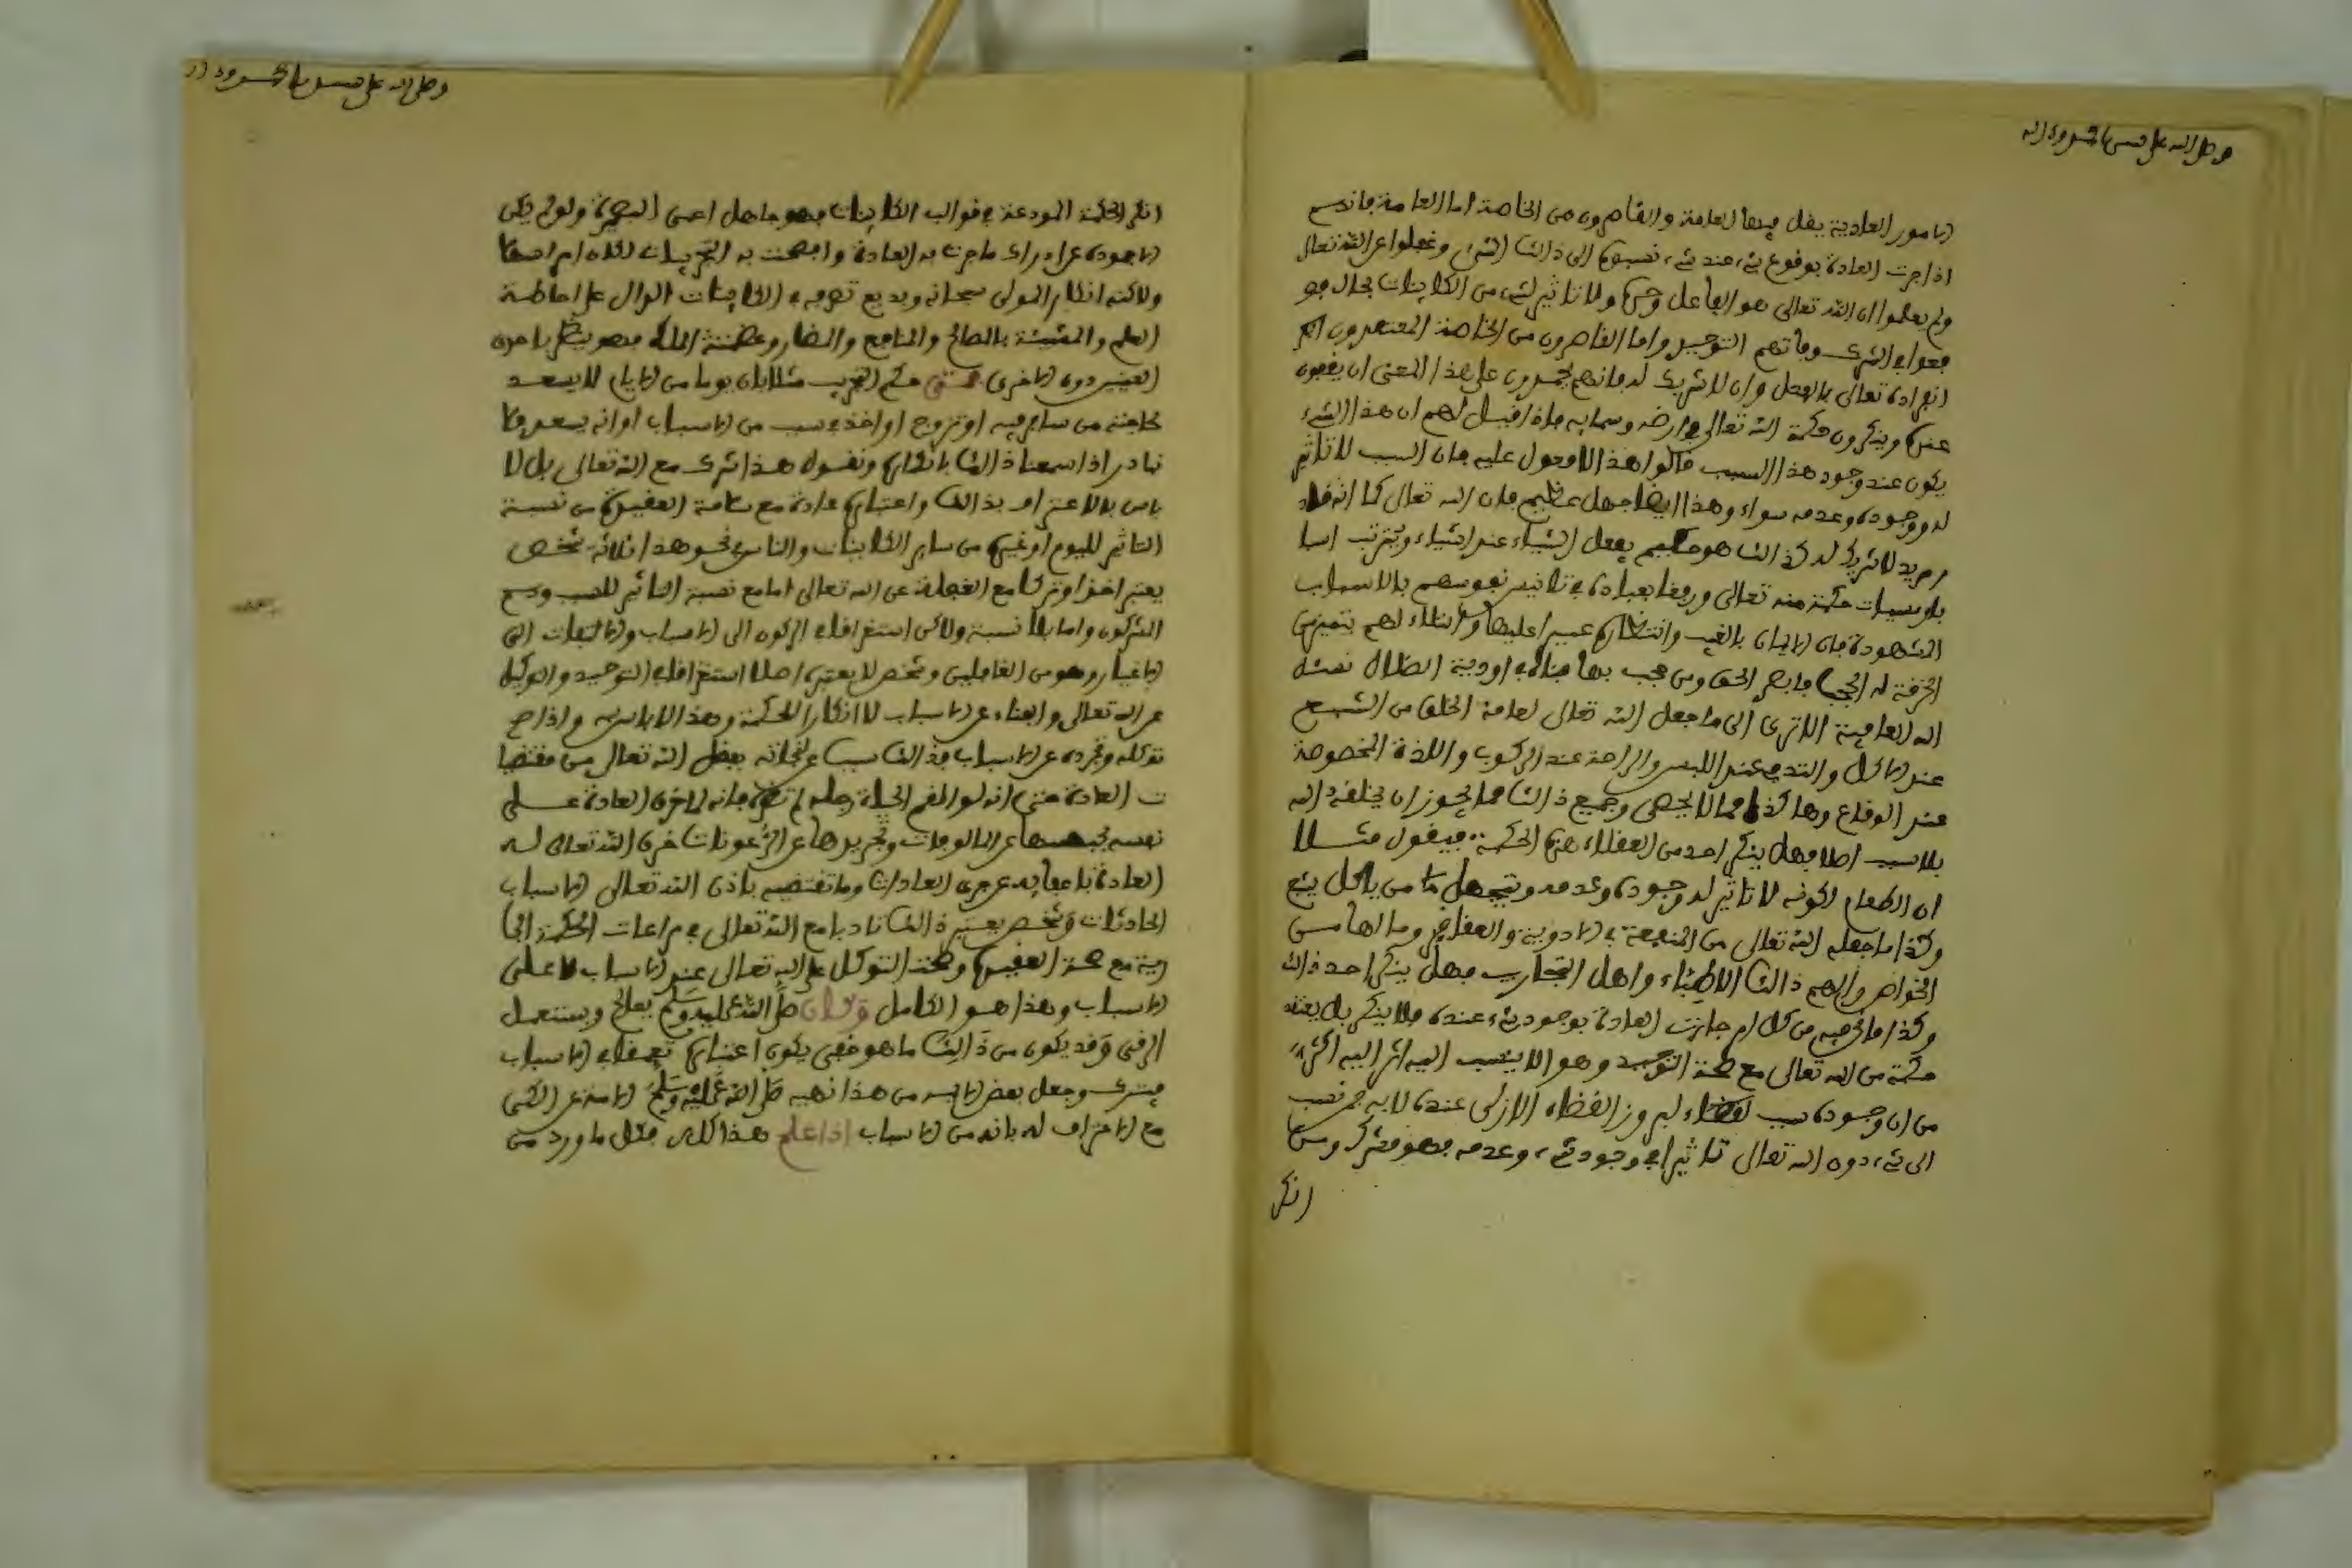 وصلى الله على سيدنا محمد وءاله
الامور العادية يغل فيها العامة والقاصرون من الخاصة اما العامة فانهم
اذا جرت العادة بوقوع شيء عند شيء نسبوه الى ذالك الشيء وغفلوا عن الله تعالى
ولم يعلموا ان الله تعالى هو الفاعل وحده ولا تاثير لشيء من الكاينات بحال فو
قعوا في الشرك وفاتهم التوحيد واما القاصرون من الخاصة المعتقدون
انفراده تعالى بالفعل وان لا شريك له فانهم يجمدون على هذا المعنى ان يقفون
عنده وينكرون حكمة الله تعالى في ارضه وسمايه فاذا قيل لهم ان هذا الشيء
يكون عند وجود هذا السبب قالوا هذا لا معول عليه فان السبب لا تاثير
له ووجوده وعدمه سواء وهذا ايضا جهل عظيم فان الله تعالى كما انه قادر
مريد لا شريك له كذالك هو حكيم يفعل اشياء عند اشياء ويرتب اسبا
با ومسببات حكمة منه تعالى ورفقا بعباده في تانيس نفوسهم بالاسباب
المشهودة فان الايمان بالغيب وانتظاره عسير عليها وابتلاء لهم بتمييز من
الخرقت له الحجب فابصر الحق ومن حجب بها فتاه في اودية الضلال نسئل
الله العافية الا ترى الى ما جعل الله تعالى لعامة الخلق من الشبع
عند الاكل والتدفي عند اللبس والراحة عند الركوب واللذة المخصوصة
عند الوقاع وهاكذا مما لا يحصى وجميع ذالك مما يجوز ان يخلقه الله
بلا سبب اصلا فهل ينكر احد من العقلاء هذه الحكمة فيقول مثلا
ان الطعام لكونه لا تاثير له وجوده وعدمه ويتجهل من ياكل يشبع
وكذا ما جعله الله تعالى من المنفعة في الادوية والعقاقير وما لها من
الخواص والهم ذالك الاطباء واهل التجارب فهل ينكر احد ذالك
وكذا ما نحن فيه من كل امر جارت العادة بوجود شيء عنده فلا ينكر بل يعتقد
حكمة من الله تعالى مع صحة التوحيد وهو الا ينسب اليه اثر اليه اكثر
من ان وجوده سبب لقضاء لبروز القضاء الازلي عنده لا به فمن نسب
الى شيء دون الله تعالى تاثيرا في وجود شيء وعدمه فهو مشرك ومن
انكر
وصلى الله على سيدنا محمد وءاله
انكر الحكمة المودعة في قوالب الكاينات فهو جاهل اعمى البصيرة ولو لم يكن
الا جموده عن ادراك ما جرت به العادة وافصحت به التجربات لكان امرا صعبا
ولاكنه انكار المولى سبحانه وبديع تصرفه في الكاينات الدال على احاطة
العلم والمشيئة بالصالح والنافع والضار وعظمة الملك فهو ينظر باحدى
العينين دون الاخرى حكم التجريب مثلا بان يوما من الايام لا يسعد
لحاجته من سافر فيه او تزوج او اخذ في سبب من الاسباب او انه يسعد فلا
نبادر اذا سمعنا ذالك بانكاره ونقول هذا شرك مع الله تعالى بل لا
باس بالاعتراف بذالك واعتباره عادة مع سلامة العقيدة من نسبة
التاثير لليوم او غيره من ساير الكاينات والناس في نحو هذا ثلاثة شخص
يعتبر اخذا وتركا مع الغفلة عن الله تعالى اما مع نسبة التاثير للسبب وهم
المشركون واما بلا نسبة ولاكن استغراقا في الركون الى الاسباب والالتفات الى
الاغيار وهو من الغافلين وشخص لا يعتبر اصلا استغراقا في التوحيد والتوكل
على الله تعالى وافناء عن الاسباب لا انكارا للحكمة وهذا لا باس به واذا صح
توكله وتجرده عن الاسباب فذالك سببا في نجاته بفضل الله تعالى من مقتضيا
ت العادة حتى انه لو القم الحية رجله لم تضره فانه لما خرق العادة على
نفسه بحبسها عن المالوفات وتجريدها عن الرعونات خرق الله تعالى له
العادة بامعايه عن جري العادات وما تقتضيه باذن الله تعالى الاسباب
الحادثات وشخص يعتبر ذالك تادبا مع الله تعالى في مراعات الحكمة الجا
رية مع صحة العقيدة وصحة التوكل على الله تعالى عند الاسباب لا على
الاسباب وهذا هو الكامل وكان صلى الله عليه وسلم يعالج ويستعمل
الرقى وقد يكون من ذالك ما هو خفي يكون اعتباره تعمقا في الاسباب
فيترك وجعل بعض الايمة من هذا نهيه صلى الله عليه وسلم الامة عن الكي
مع الاعتراف له بانه من الاسباب اذا علم هذا كله فمثل ما ورد من